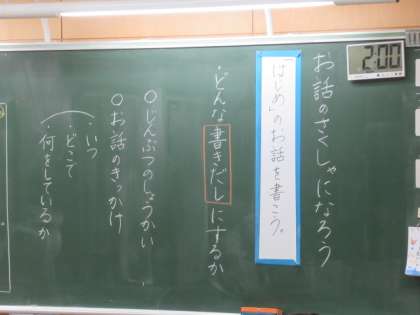 お話のさくしゃになろう
「はじめ」のお話を書こう。
・どんな書きだしにするか
○じんぶつのしょうかい
○お話のきっかけ
いつ
・どこで
・何をしているか
2:00